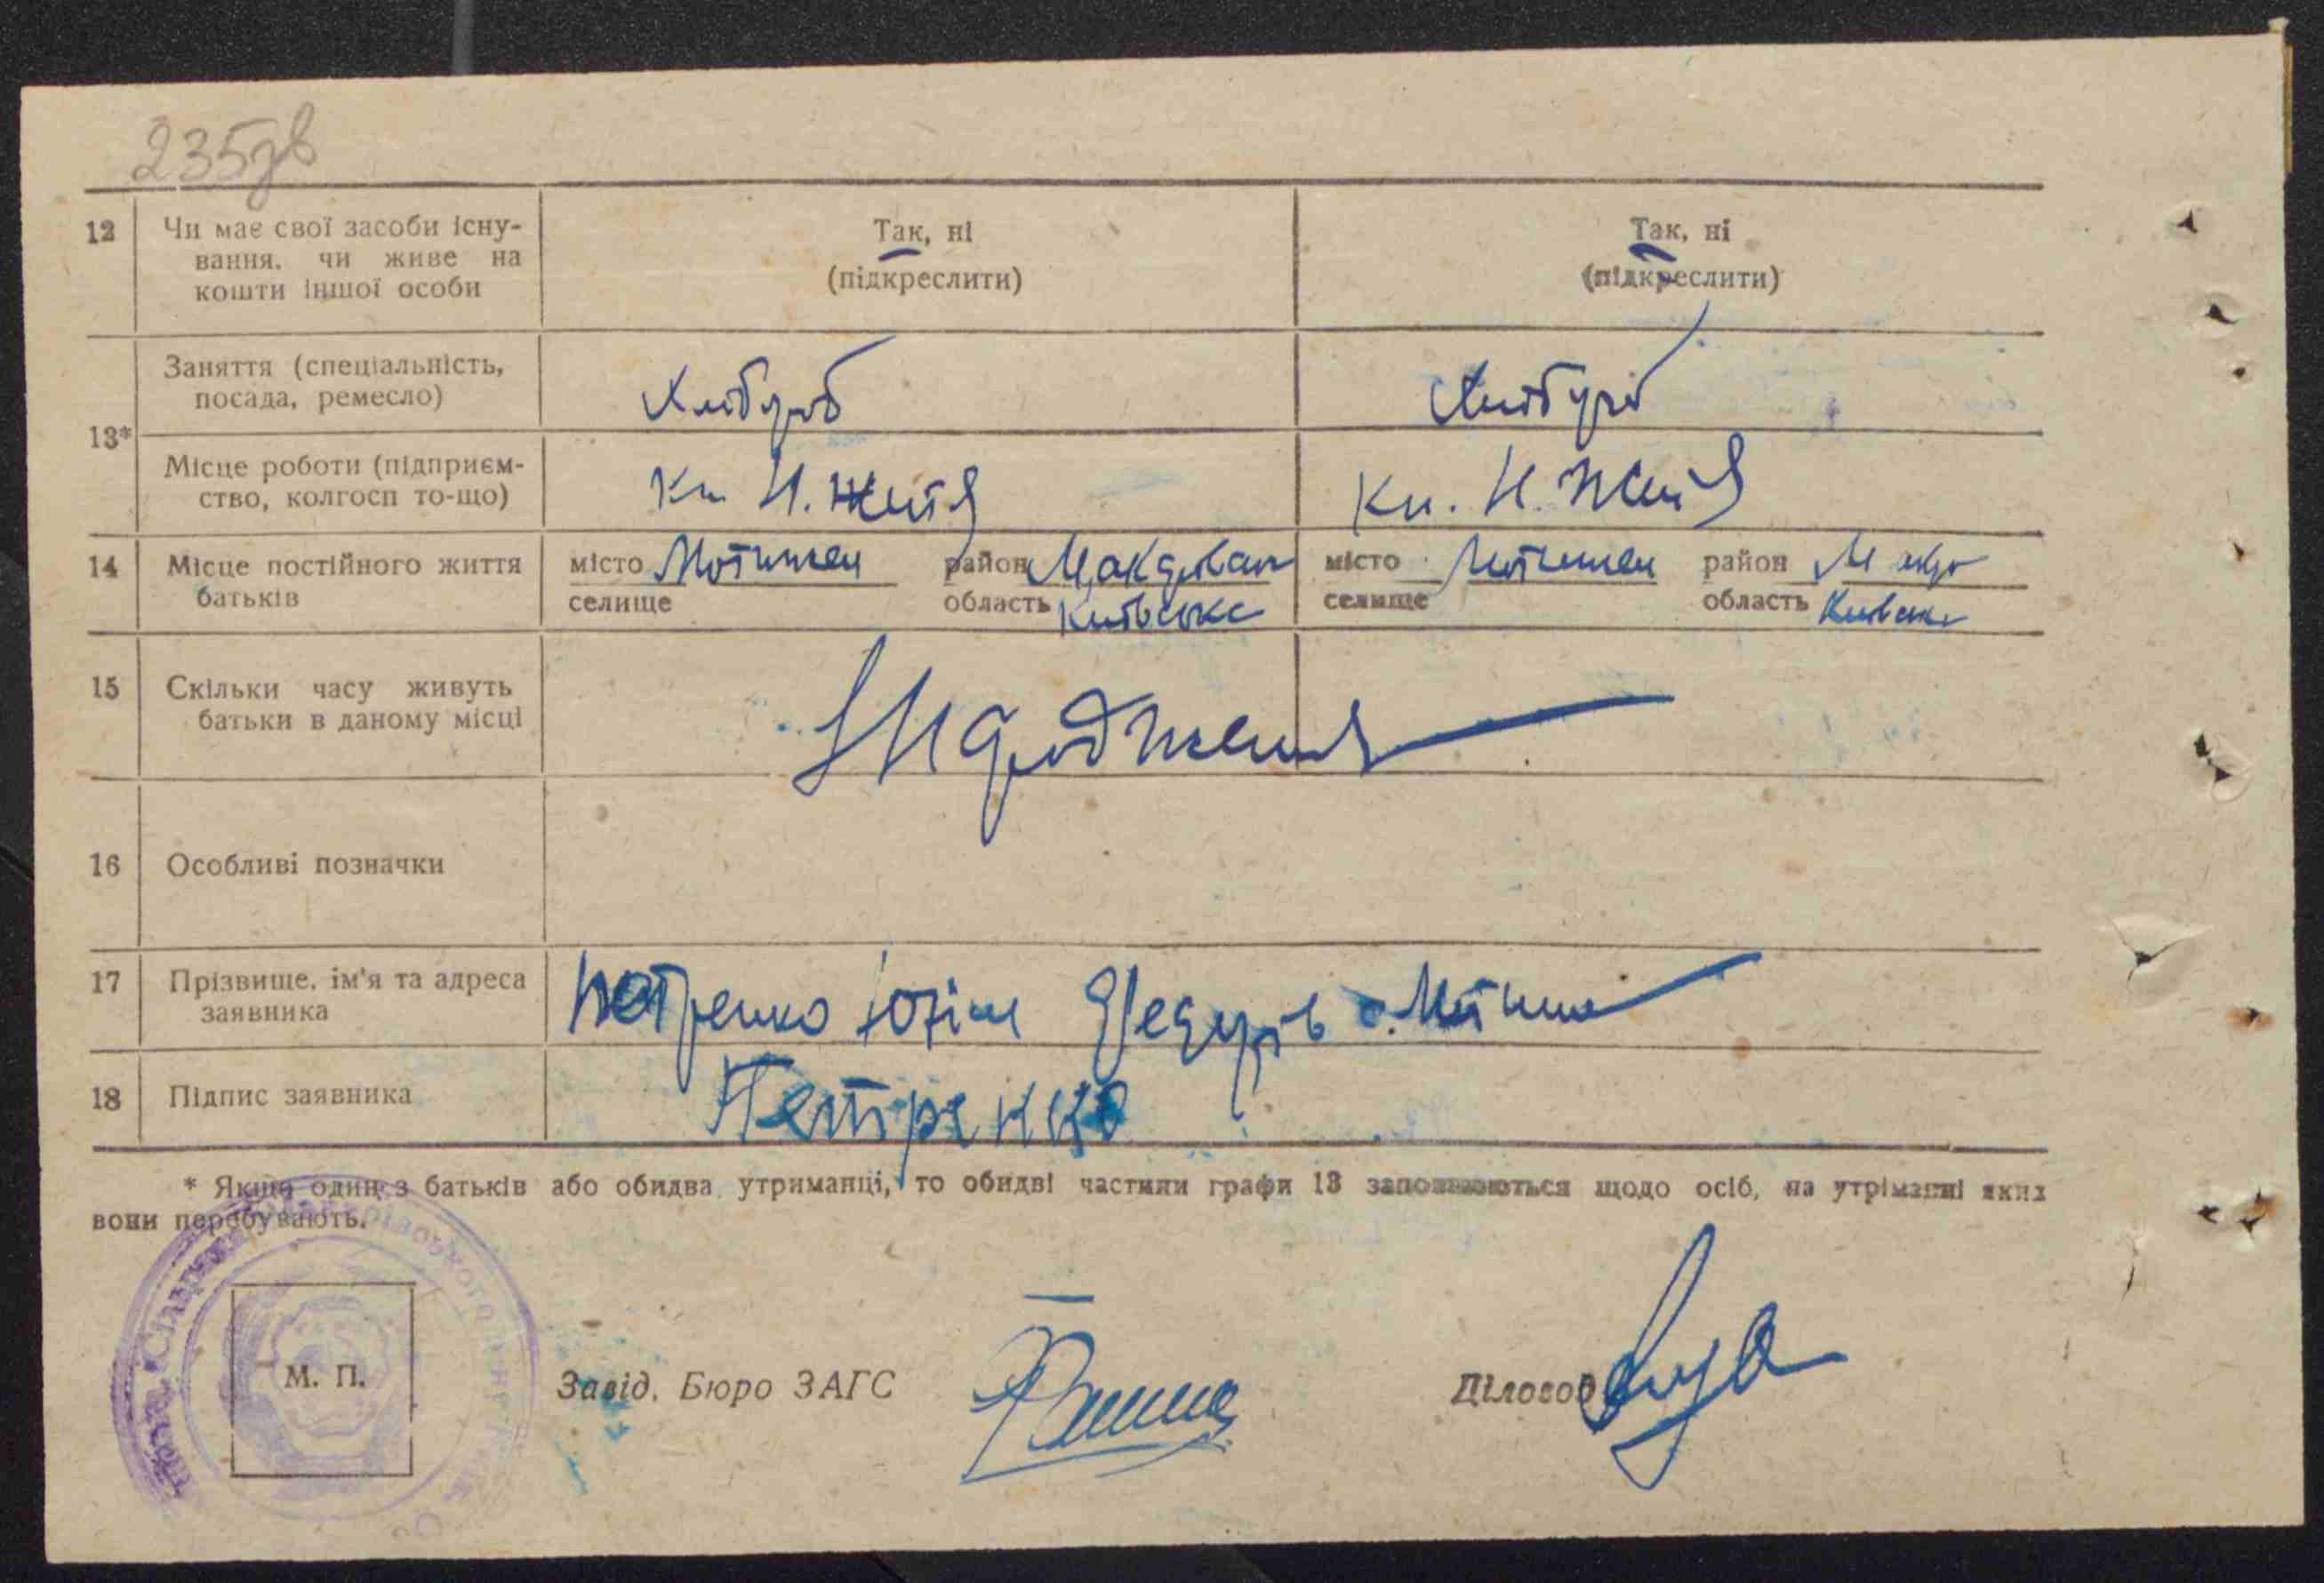 235зв
12 Чи має свої засоби існу-
вання, чи живе на
кошти іншої особи
Так, ні
(підкреслити)
Так, ні
(підкреслити)
13*
Заняття (спеціальність,
посада, ремесло)
Хлібороб
Хлібороб
Місце роботи (підприєм-
ство, колгосп то-що)
Н. Життя
Н. Життя
14 Місце постійного життя
батьків
місто Мотижен район
селище область Київська
місто Мотижен район Макар
селище область Київська
15 Скільки часу живуть
батьки в даному місці
З народження
16 Особливі позначки
17 Прізвище, ім'я та адреса
заявника
Петренко Юхим Федорів с. Мотижи
18 Підпис заявника
Петренко
* Якщо один з батьків або обидва утриманці, то обидві частини графи 13 заповнюються щодо осіб, на утриманні яких
вони перебувають.
М. П.
Завід. Бюро ЗАГС
Діловод